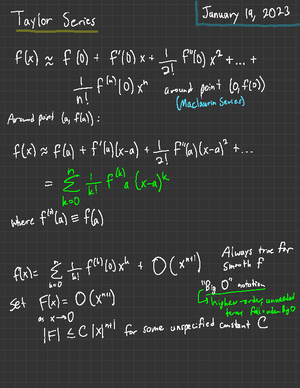 Taylor Series
January 19, 2023
f(x) ≈ f(0) + f'(0)x + 1/2! f''(0)x² + ... +
1/n! f⁽ⁿ⁾(0)xⁿ around point (0, f(0))
(Maclaurin Series)
Around point (a, f(a)):
f(x) ≈ f(a) + f'(a)(x-a) + 1/2! f''(a)(x-a)² + ...
= ∑ₖ₌₀ⁿ 1/k! f⁽ᵏ⁾a (x-a)ᵏ
where f⁽⁰⁾(a) ≡ f(a)
Always true for
smooth f
f(x) = ∑ₖ₌₀ⁿ 1/k! f⁽ᵏ⁾(0)xᵏ + O(xⁿ⁺¹)
"Big O" notation
higher-order, unneeded
terms
Set F(x) = O(xⁿ⁺¹)
as x→0
|F| ≤ C|x|ⁿ⁺¹ for some unspecified constant C